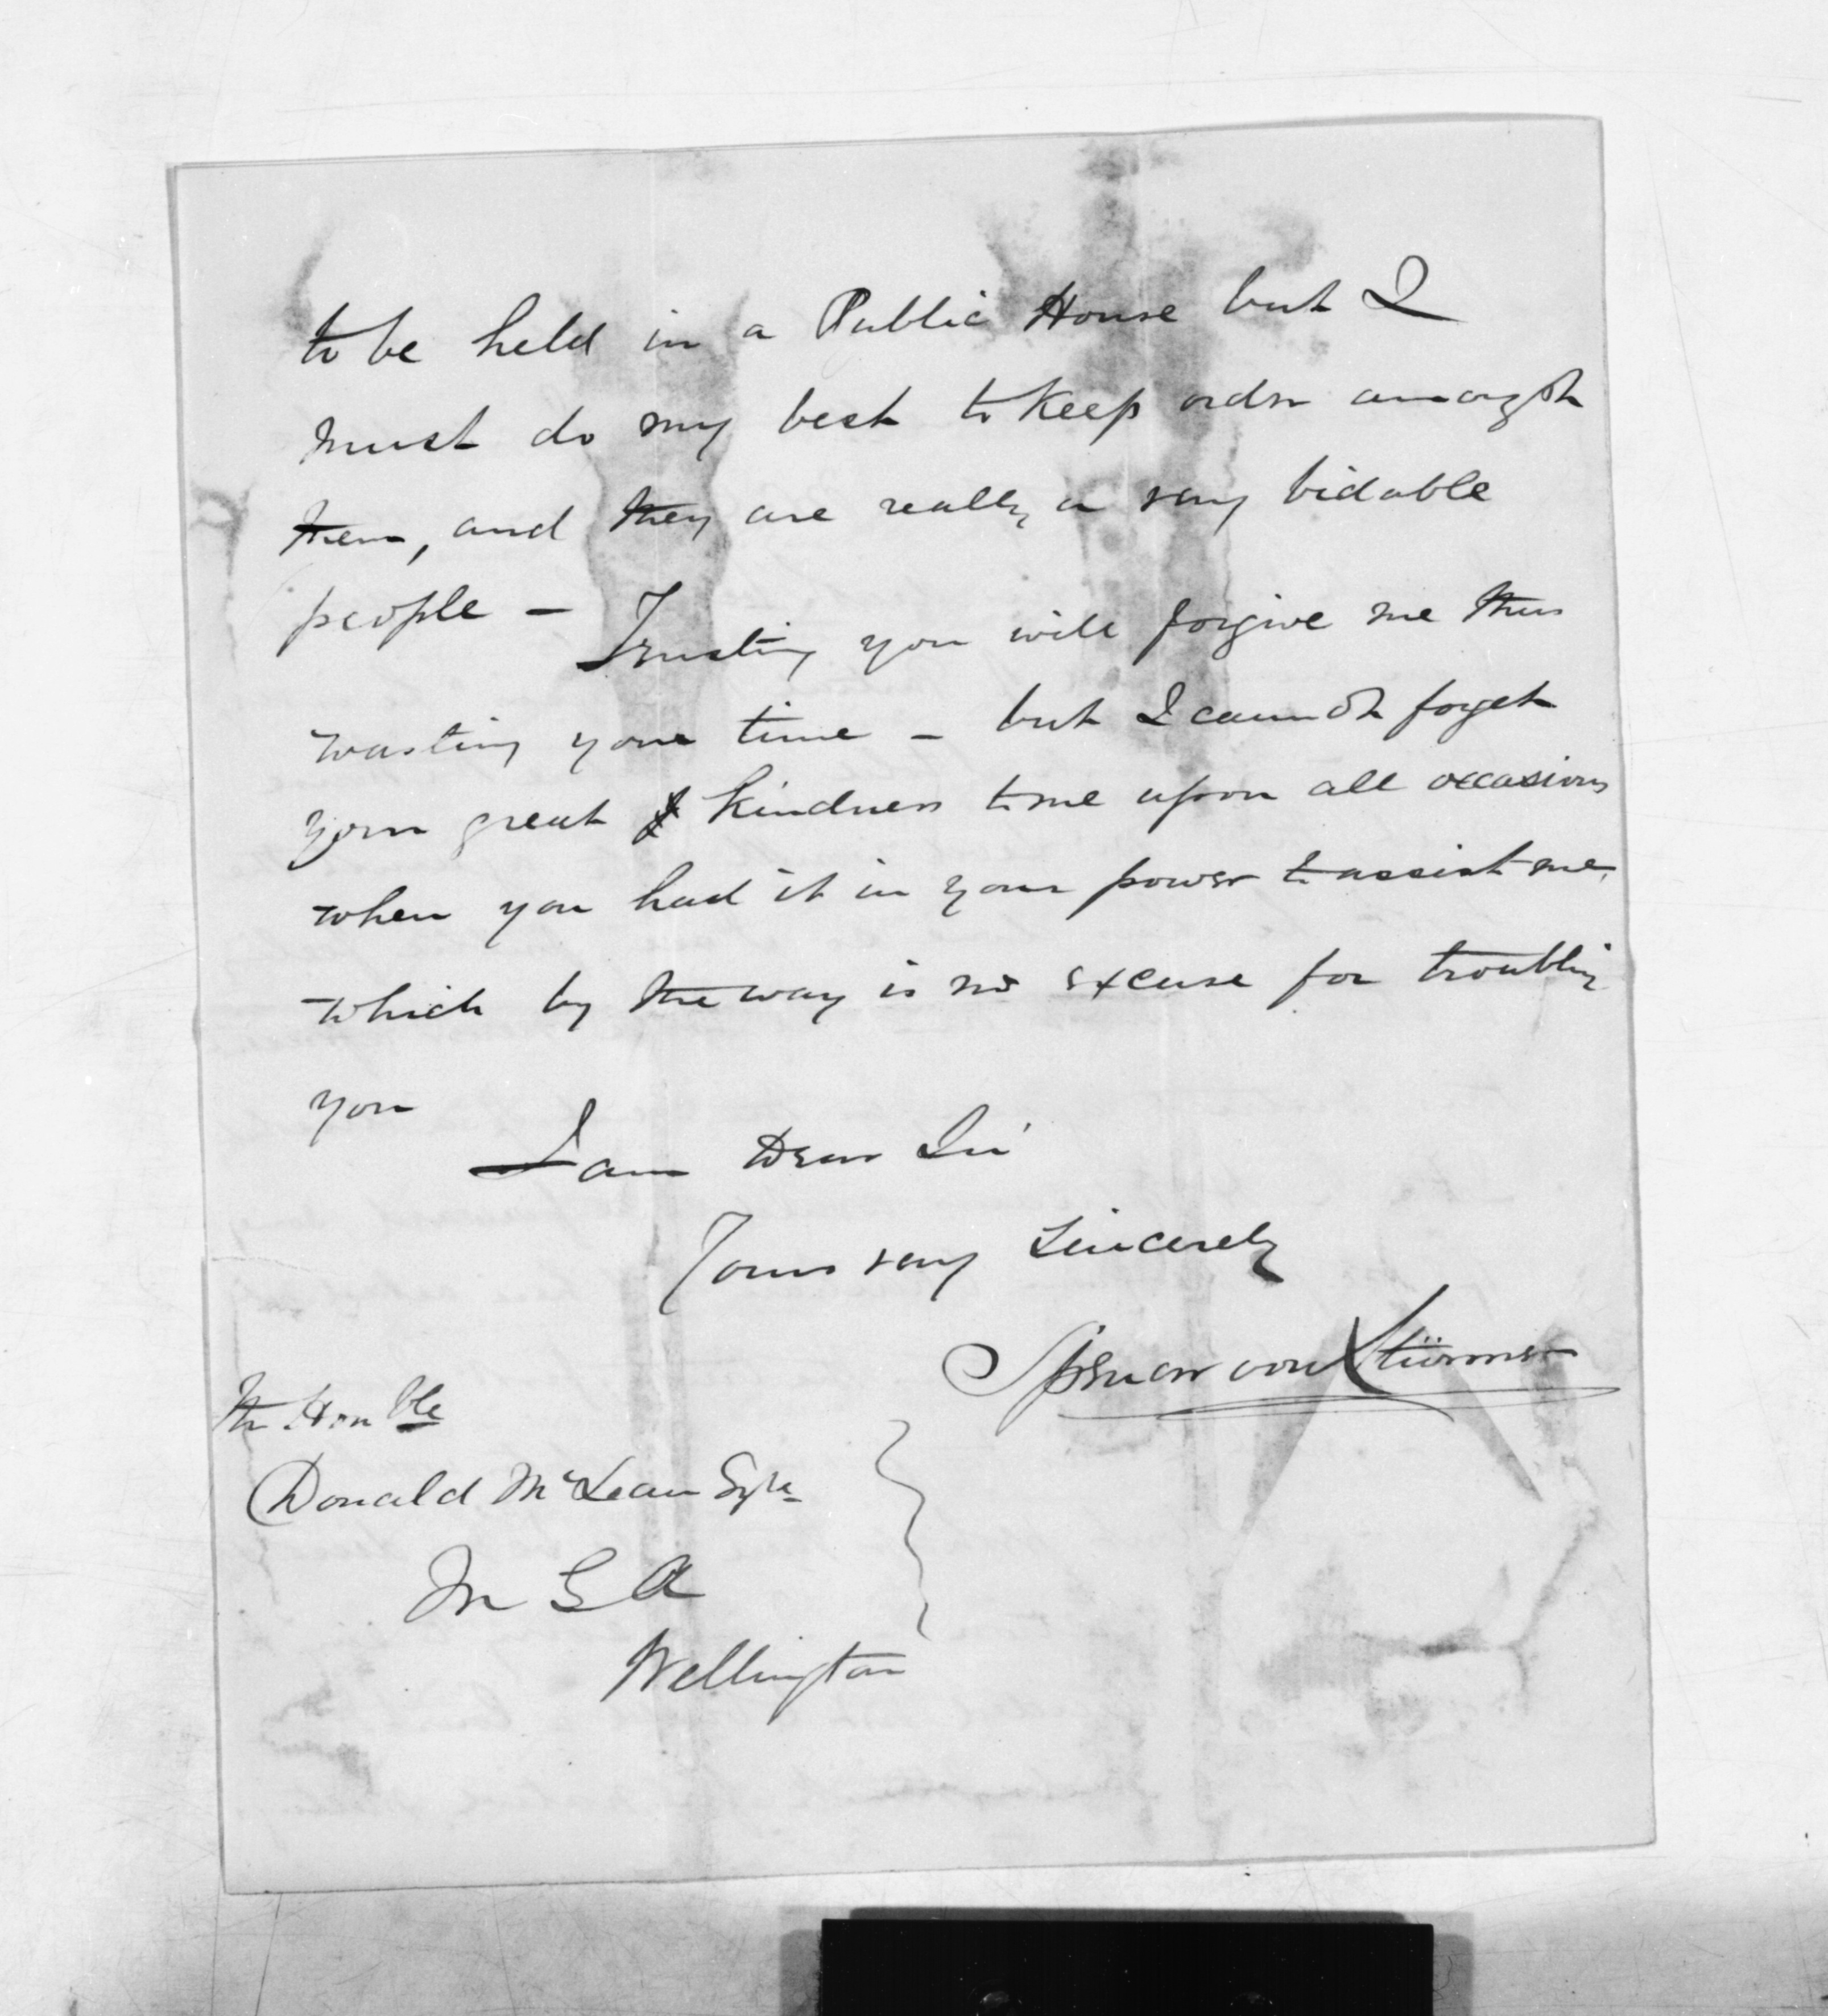 to be held in a Public House but I
must do my best to keep order amongst
them, and they are really a very bidable
people – Trusting you will forgive me thus
wasting your time – but I cannot forget
your great kindness to me upon all occasions
when you had it in your power to assist me,
which by the way is no excuse for troubling
you
I am Dear Sir
Yours very Sincerely
Spencer von Stürmer
The Honble
Donald McLean Esqre
M G A
Wellington